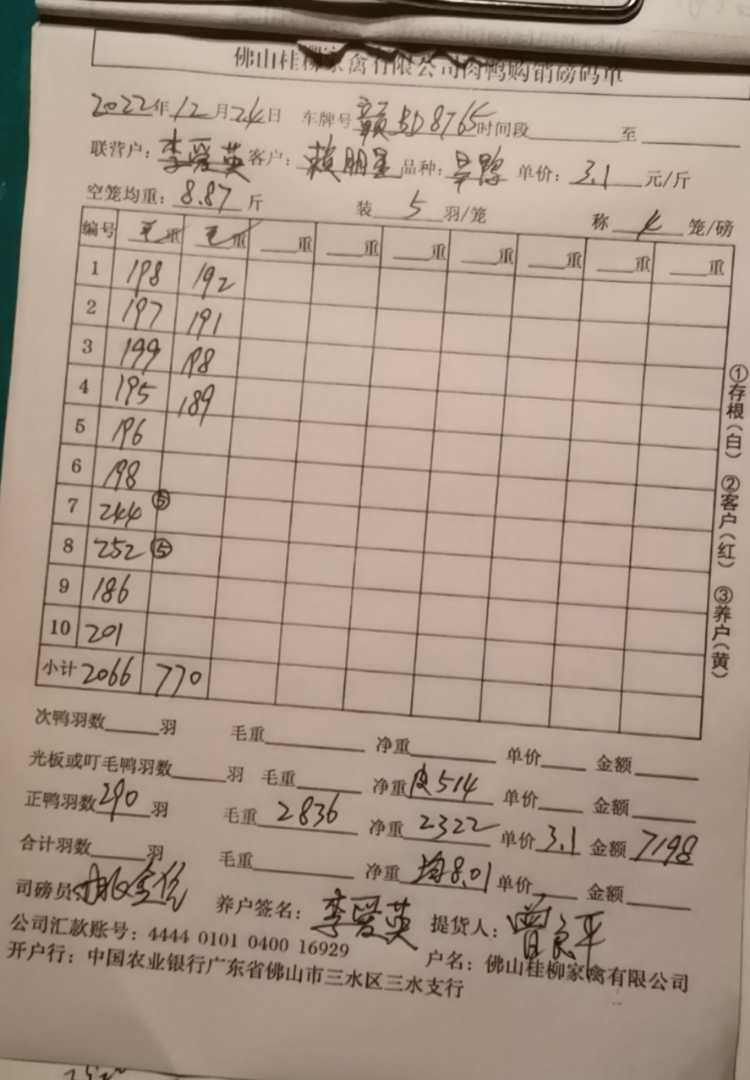 佛山桂柳家禽有限公司肉鸭购销磅码单
2022年12月24日 车牌号 赣BD8765 时间段 至
联营户:李爱英 客户:赖明星 品种: 旱鸭 单价:3.1元/斤
空笼均重:8.87斤 装5羽/笼 称4笼/磅
编号 毛重 毛重 重 重 重 重 重 重 重
1 198 192
2 197 191
3 199 198
4 195 189
5 196
6 198
7 244 ⑤
8 252 ⑤
9 186
10 201
小计 2066 770
次鸭羽数 羽 毛重 净重 单价 金额
光板或叮毛鸭羽数 羽 毛重 净重 皮514 单价 金额
正鸭羽数290羽 毛重2836 净重2322 单价3.1 金额7198
合计羽数 羽 毛重 净重 均8.01 单价 金额
司磅员: 养户签名:李爱英 提货人:曾良平
公司汇款账号:4444 0101 0400 16929 户名:佛山桂柳家禽有限公司
开户行:中国农业银行广东省佛山市三水区三水支行
①存根(白) ②客户(红) ③养户(黄)